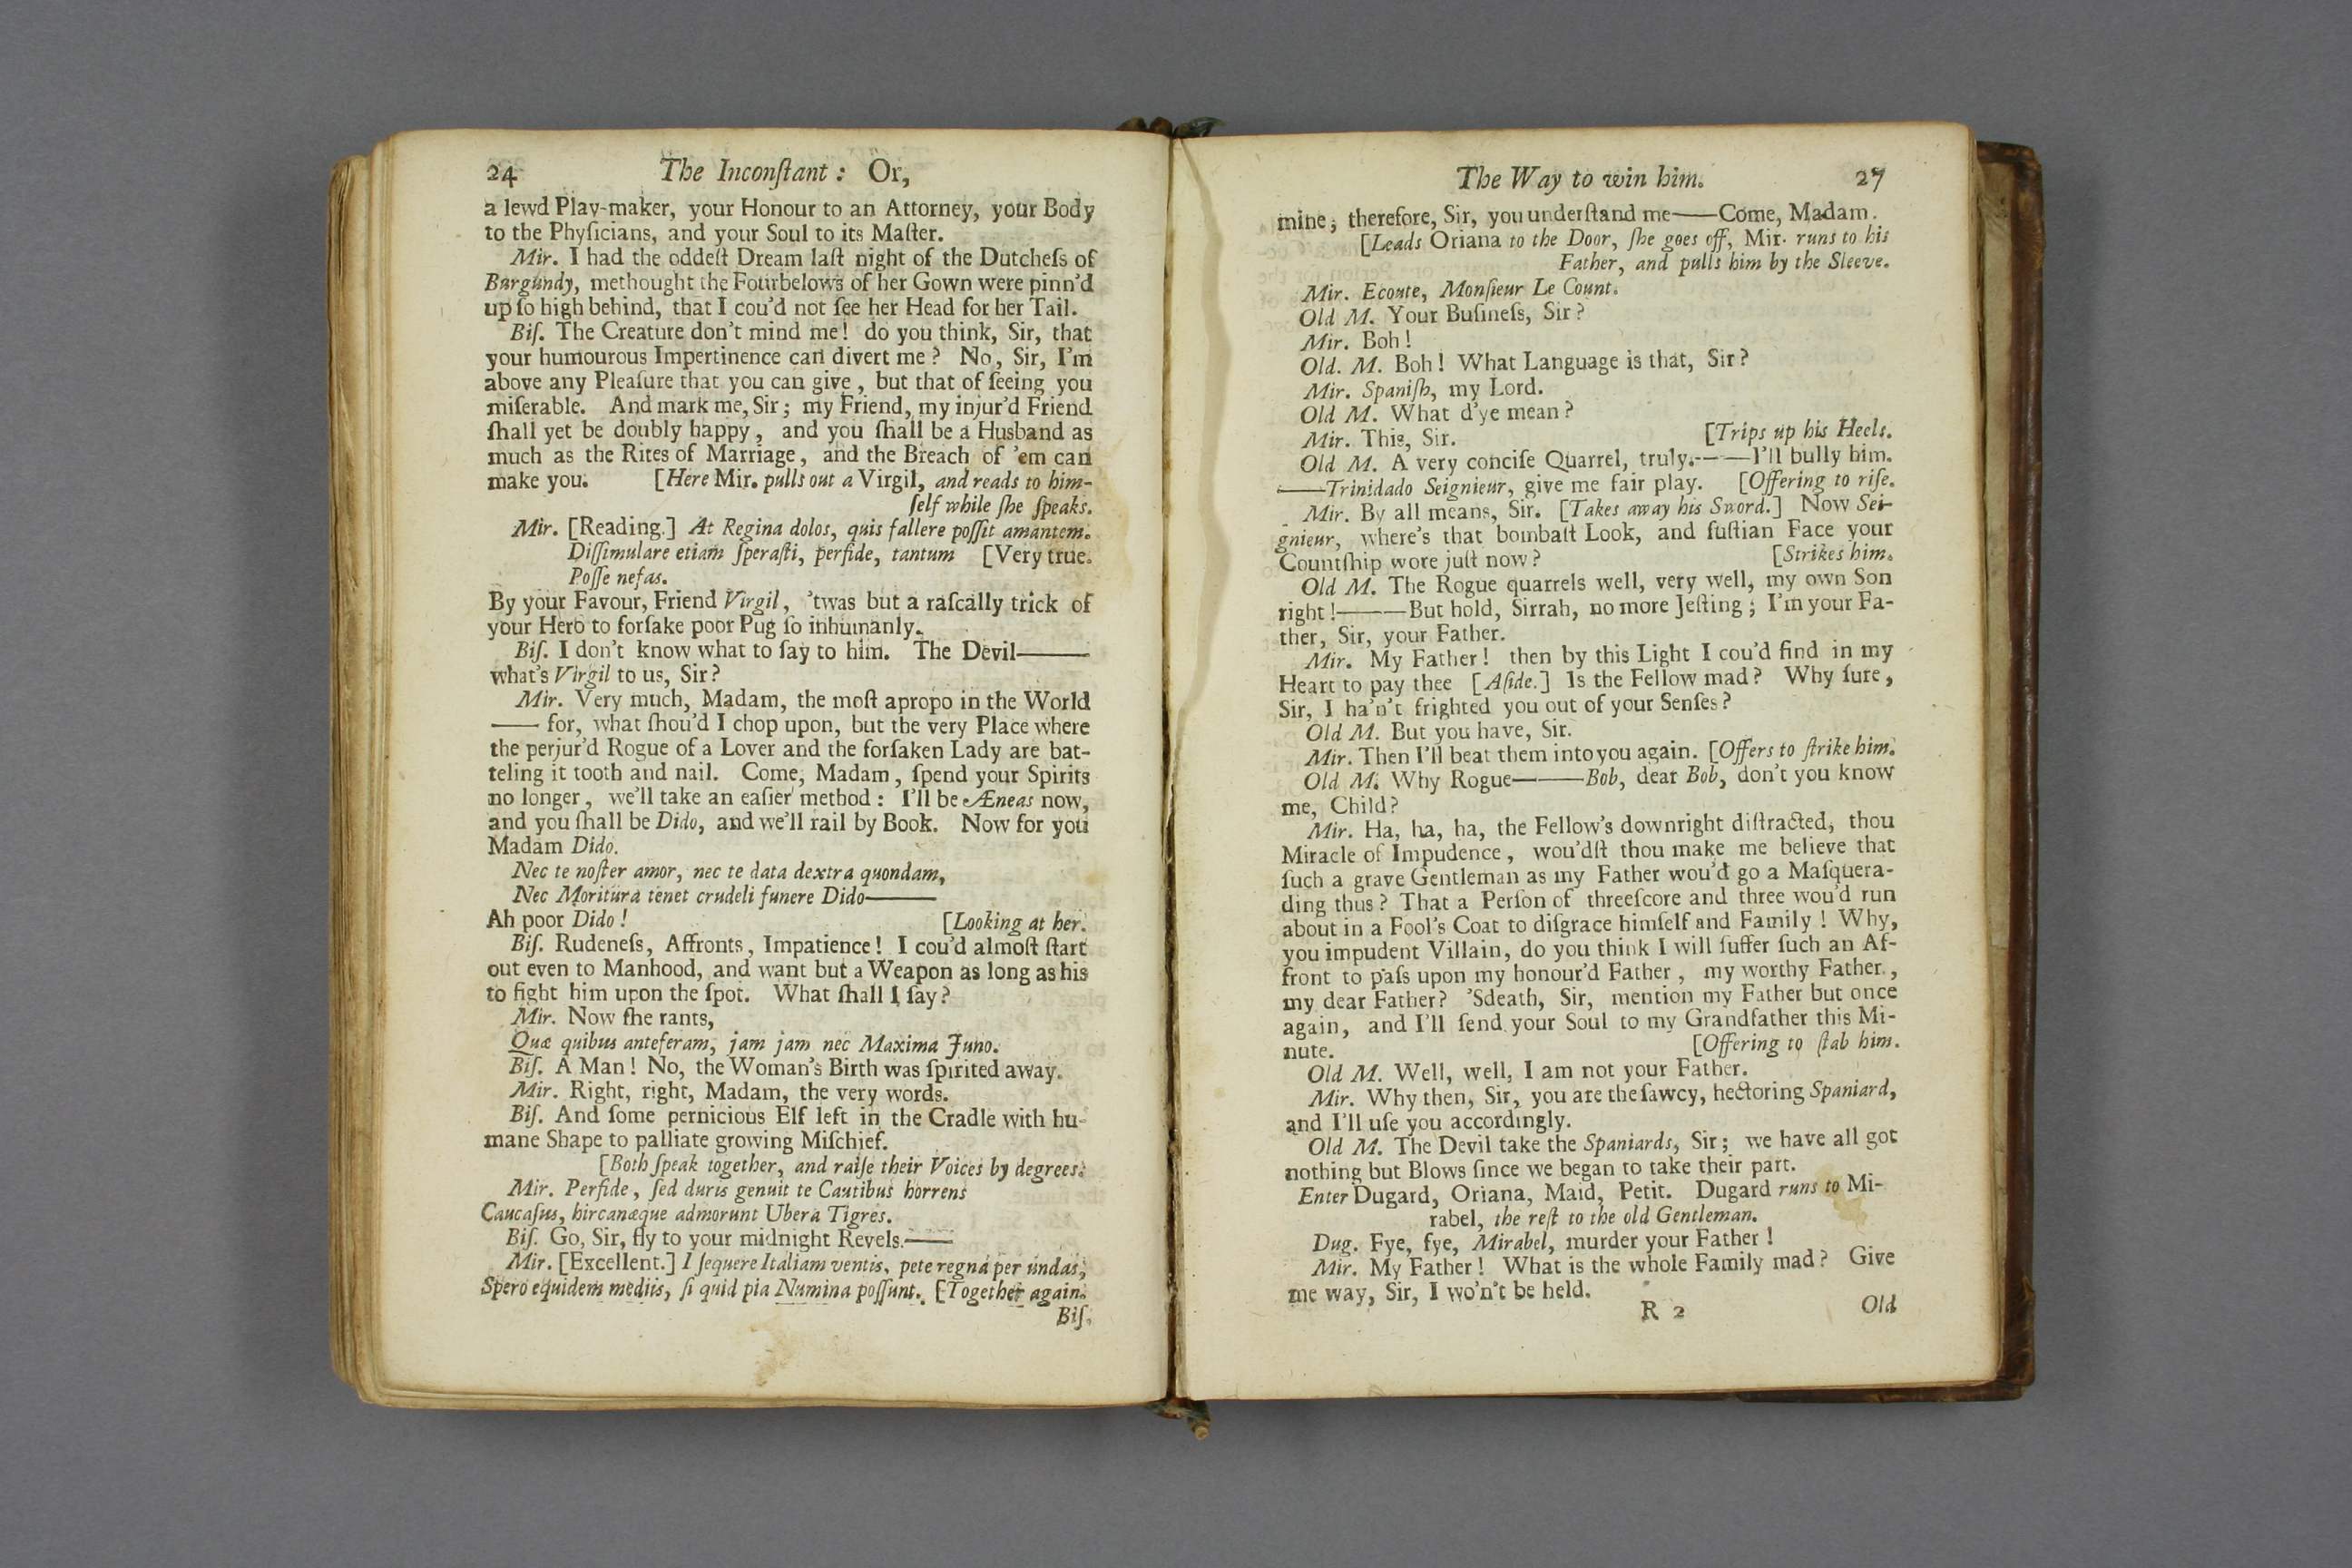 24 The Inconſtant: Or,
a lewd Play-maker, your Honour to an Attorney, your Body
to the Phyſicians, and your Soul to its Maſter.
Mir. I had the oddeſt Dream laſt night of the Dutcheſs of
Burgundy, methought the Fourbelows of her Gown were pinn'd
up ſo high behind, that I cou'd not ſee her Head for her Tail.
Biſ. The Creature don't mind me! do you think, Sir, that
your humourous Impertinence can divert me? No, Sir, I'm
above any Pleaſure that you can give, but that of ſeeing you
miſerable. And mark me, Sir; my Friend, my injur'd Friend
ſhall yet be doubly happy, and you ſhall be a Husband as
much as the Rites of Marriage, and the Breach of 'em can
make you. [Here Mir. pulls out a Virgil, and reads to him-
ſelf while ſhe ſpeaks.
Mir. [Reading.] At Regina dolos, quis fallere poſſit amantem.
Diſſimulare etiam ſperaſti, perfide, tantum [Very true.
Poſſe nefas.
By your Favour, Friend Virgil, 'twas but a raſcally trick of
your Hero to forſake poor Pug ſo inhumanly.
Biſ. I don't know what to ſay to him. The Devil——
what's Virgil to us, Sir?
Mir. Very much, Madam, the moſt apropo in the World
—— for, what ſhou'd I chop upon, but the very Place where
the perjur'd Rogue of a Lover and the forſaken Lady are bat-
teling it tooth and nail. Come, Madam, ſpend your Spirits
no longer, we'll take an eaſier method: I'll be Æneas now,
and you ſhall be Dido, and we'll rail by Book. Now for you
Madam Dido.
Nec te noſter amor, nec te data dextra quondam,
Nec Moritura tenet crudeli funere Dido——
Ah poor Dido! [Looking at her.
Biſ. Rudeneſs, Affronts, Impatience! I cou'd almoſt ſtart
out even to Manhood, and want but a Weapon as long as his
to fight him upon the ſpot. What ſhall I ſay?
Mir. Now ſhe rants,
Quæ quibus anteferam, jam jam nec Maxima Juno.
Biſ. A Man! No, the Woman's Birth was ſpirited away.
Mir. Right, right, Madam, the very words.
Biſ. And ſome pernicious Elf left in the Cradle with hu-
mane Shape to palliate growing Miſchief.
[Both ſpeak together, and raiſe their Voices by degrees.
Mir. Perfide, ſed duris genuit te Cautibus horrens
Caucaſus, hircanæque admorunt Ubera Tigres.
Biſ. Go, Sir, fly to your midnight Revels.——
Mir. [Excellent.] I ſequere Italiam ventis, pete regna per undas,
Spero equidem mediis, ſi quid pia Numina poſſunt. [Together again.
Biſ.
The Way to win him. 27
mine; therefore, Sir, you underſtand me——Come, Madam.
[Leads Oriana to the Door, ſhe goes off, Mir. runs to his
Father, and pulls him by the Sleeve.
Mir. Ecoute, Monſieur Le Count.
Old M. Your Buſineſs, Sir?
Mir. Boh!
Old. M. Boh! What Language is that, Sir?
Mir. Spaniſh, my Lord.
Old M. What d'ye mean?
Mir. This, Sir. [Trips up his Heels.
Old M. A very conciſe Quarrel, truly.---—I'll bully him.
——Trinidado Seignieur, give me fair play. [Offering to riſe.
Mir. By all means, Sir. [Takes away his Sword.] Now Sei-
gnieur, where's that bombaſt Look, and fuſtian Face your
Countſhip wore juſt now? [Strikes him.
Old M. The Rogue quarrels well, very well, my own Son
right!———But hold, Sirrah, no more Jeſting; I'm your Fa-
ther, Sir, your Father.
Mir. My Father! then by this Light I cou'd find in my
Heart to pay thee [Aſide.] Is the Fellow mad? Why ſure,
Sir, I ha'n't frighted you out of your Senſes?
Old M. But you have, Sir.
Mir. Then I'll beat them into you again. [Offers to ſtrike him.
Old M. Why Rogue———Bob, dear Bob, don't you know
me, Child?
Mir. Ha, ha, ha, the Fellow's downright diſtracted, thou
Miracle of Impudence, wou'dſt thou make me believe that
ſuch a grave Gentleman as my Father wou'd go a Maſquera-
ding thus? That a Perſon of threeſcore and three wou'd run
about in a Fool's Coat to diſgrace himſelf and Family! Why,
you impudent Villain, do you think I will ſuffer ſuch an Af-
front to paſs upon my honour'd Father, my worthy Father,
my dear Father? 'Sdeath, Sir, mention my Father but once
again, and I'll ſend your Soul to my Grandfather this Mi-
nute. [Offering to ſtab him.
Old M. Well, well, I am not your Father.
Mir. Why then, Sir, you are the ſawcy, hectoring Spaniard,
and I'll uſe you accordingly.
Old M. The Devil take the Spaniards, Sir; we have all got
nothing but Blows ſince we began to take their part.
Enter Dugard, Oriana, Maid, Petit. Dugard runs to Mi-
rabel, the reſt to the old Gentleman.
Dug. Fye, fye, Mirabel, murder your Father!
Mir. My Father! What is the whole Family mad? Give
me way, Sir, I wo'n't be held.
R 2 Old